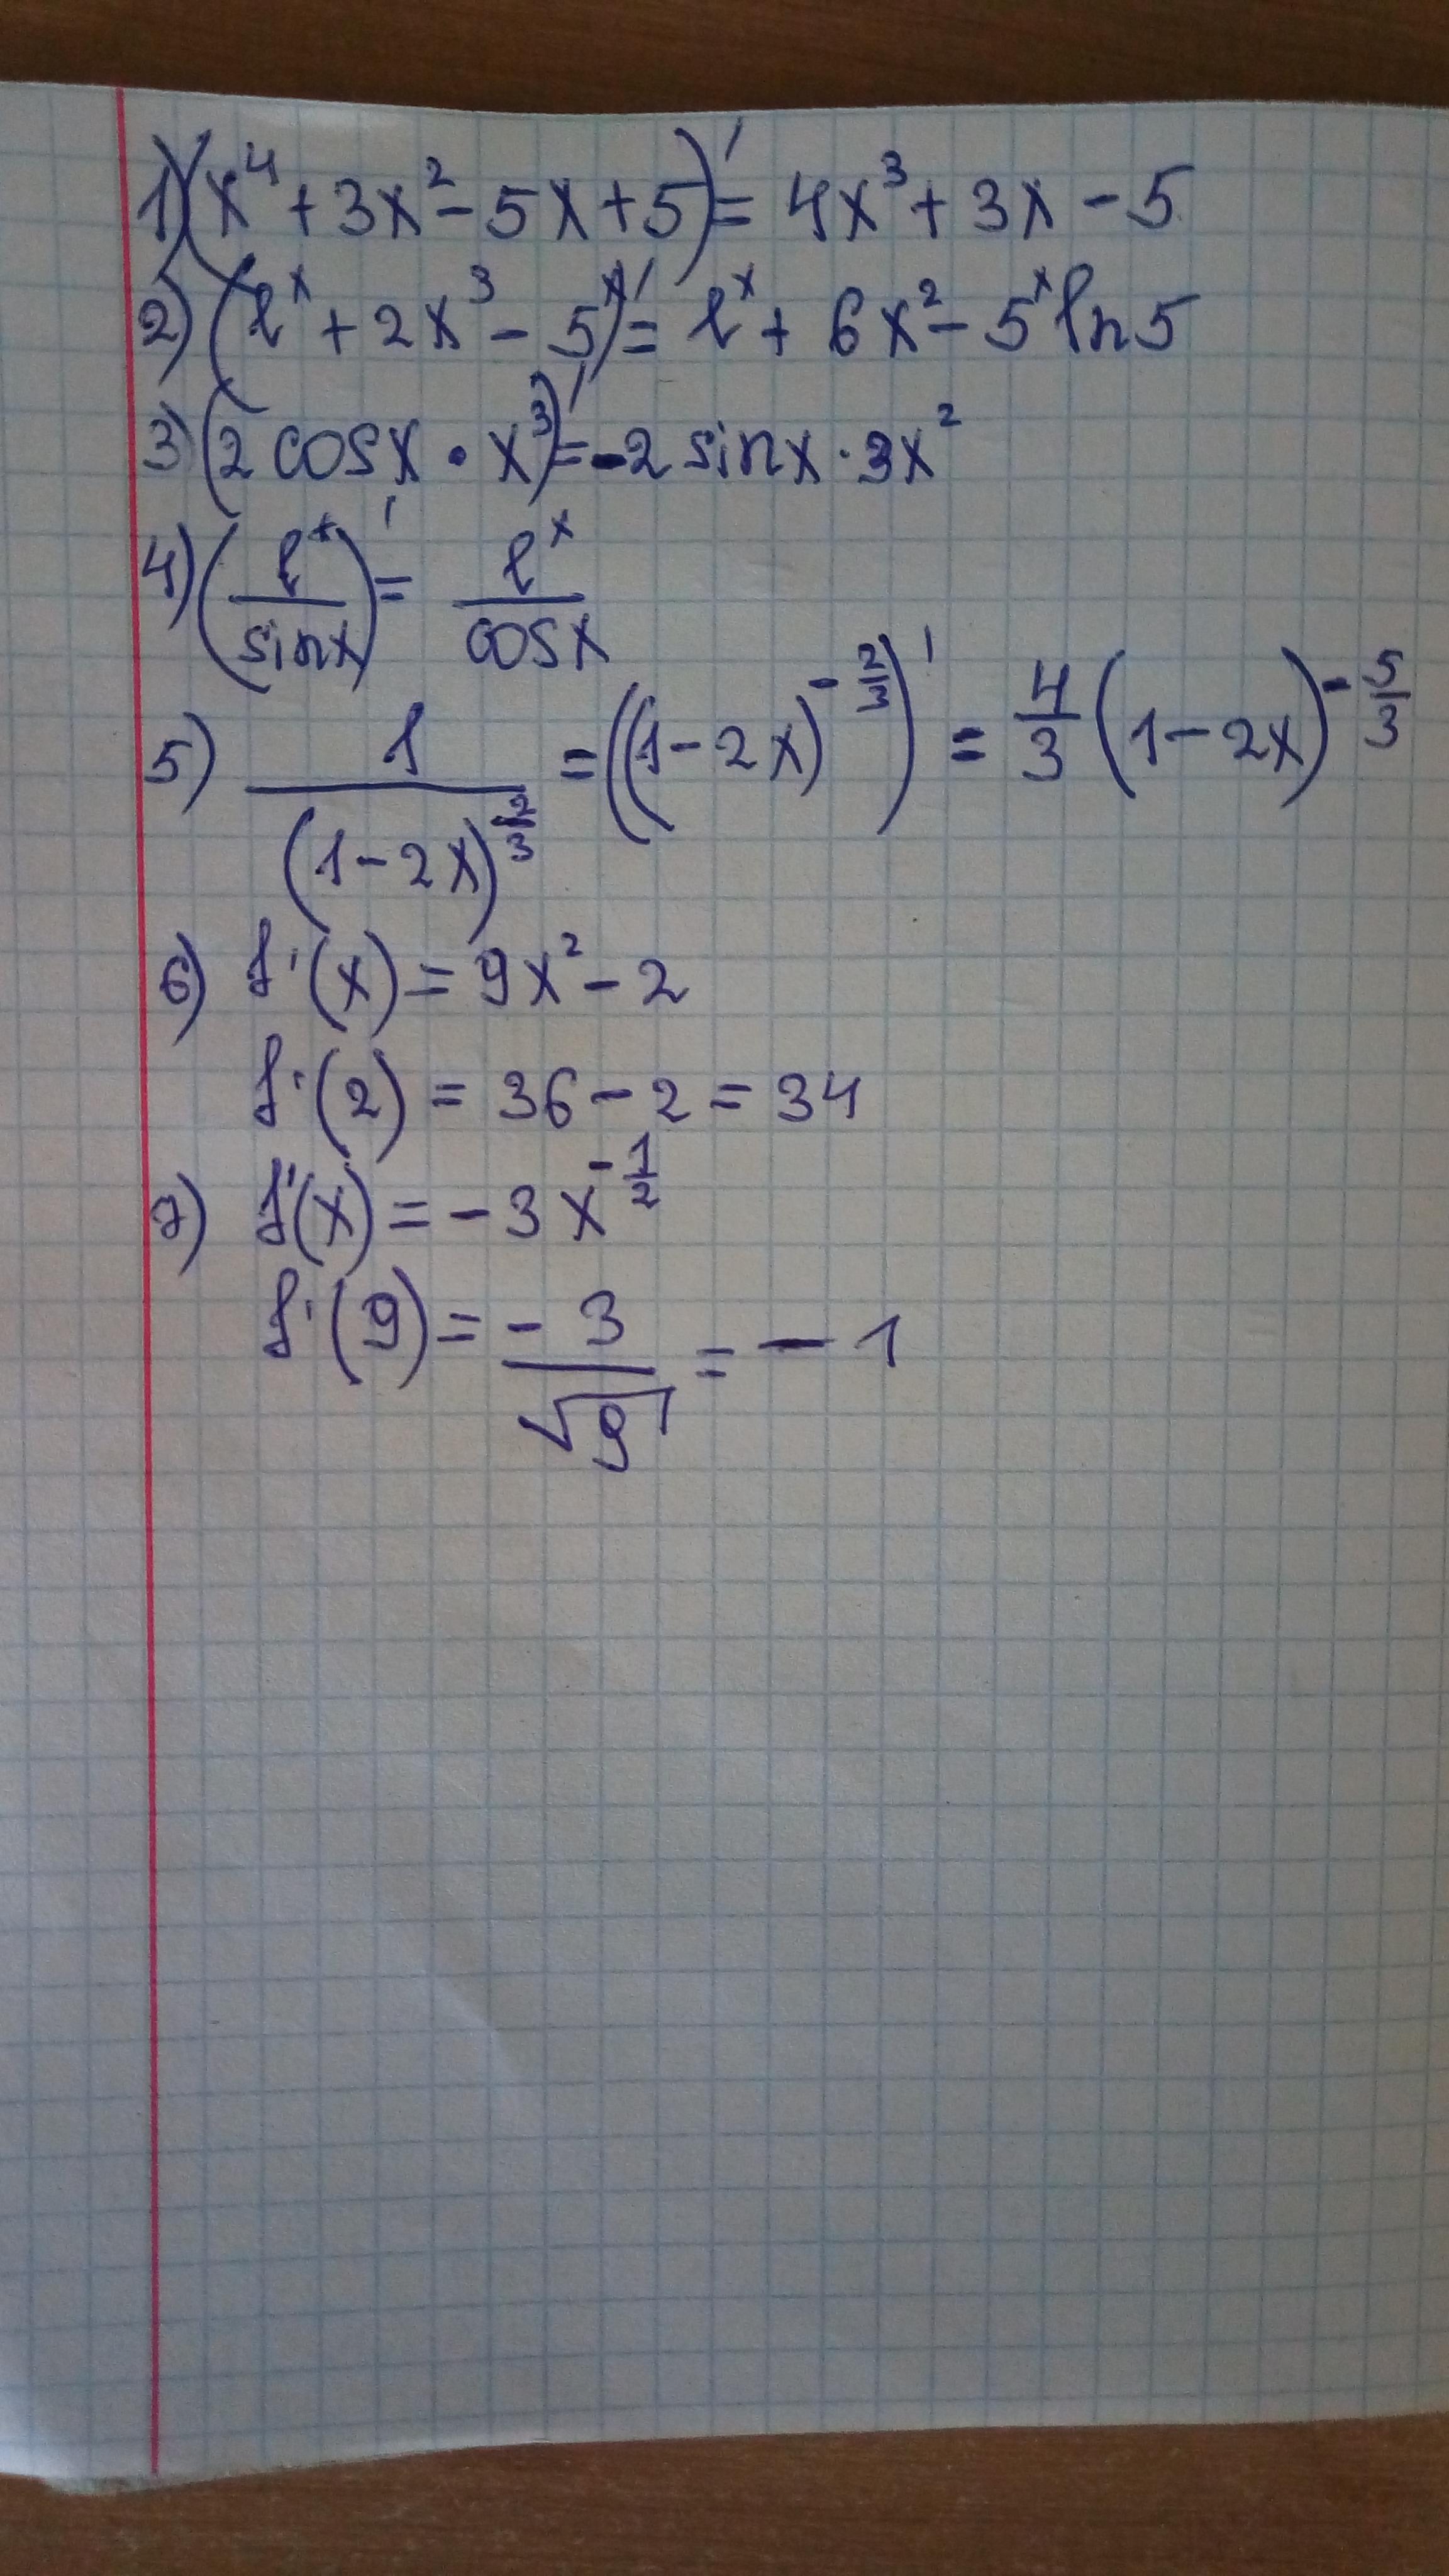 1) (x⁴ + 3x² - 5x + 5)' = 4x³ + 3x - 5
2) (e^x + 2x³ - 5^x)' = e^x + 6x² - 5^x ln 5
3) (2 cosx · x³)' = -2 sinx · 3x²
4) (e^x / sinx)' = e^x / cosx
5) 1 / (1-2x)^(2/3) = ((1-2x)^(-2/3))' = 4/3 (1-2x)^(-5/3)
6) f'(x) = 9x² - 2
f'(2) = 36 - 2 = 34
7) f'(x) = -3x^(-1/2)
f'(9) = -3 / √9 = -1